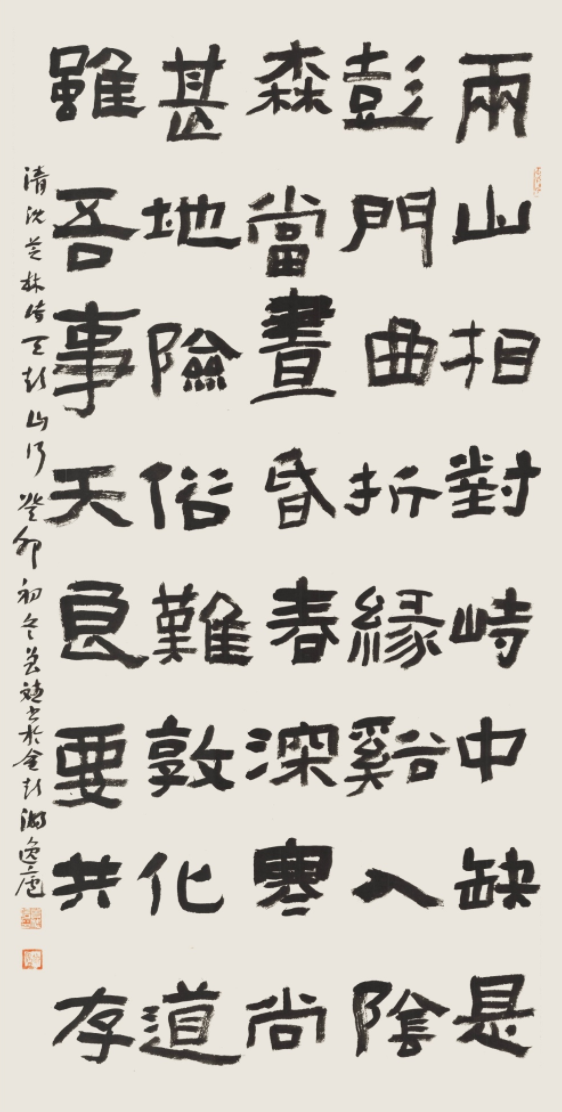 兩山相對峙中缺是
彭門曲折緣谿入陰
森當晝昏春深寒尚
甚地險俗難敦化道
雖吾事天良要共存
清沈芝林詩天彭山行癸卯初冬吳斌書於金彭湖逸廬